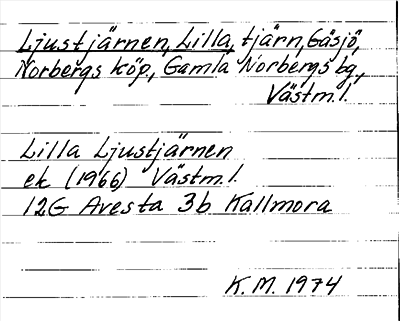 Ljustjärnen, Lilla, tjärn, Gäsjö,
Norbergs köp., Gamla Norbergs bg.,
Västm.l.
Lilla Ljustjärnen
ek (1966) Västm.l.
12G Avesta 3b Kallmora
K.M. 1974